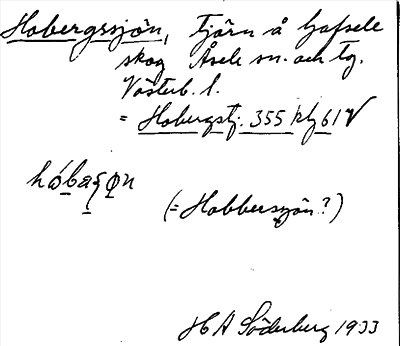 Hobergssjön, tjärn å Gafsele
skog Åsele sn. och tg.
Västerb. l.
= Hobergstj. 355 klg 61 V
(= Hobbersjön?)
H A Söderberg 1933